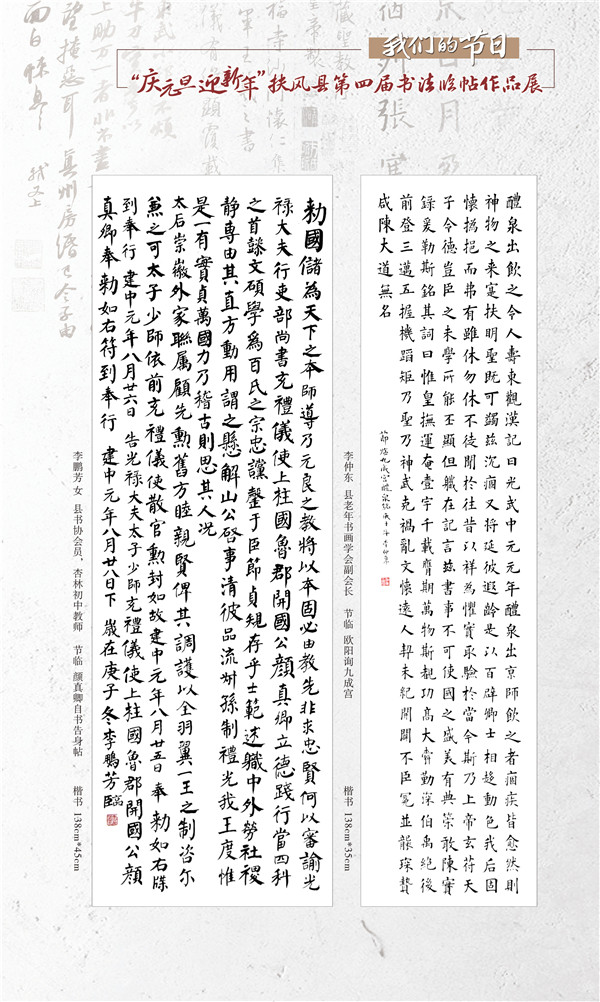 我们的节日
“庆元旦迎新年”扶风县第四届书法临帖作品展
醴泉出飲之令人壽東觀漢記曰光武中元元年醴泉出京師飲之者痼疾皆愈然則
神物之来寔扶明聖既可蠲兹沉痼又将延彼遐齡是以百辟卿士相趍動色我后固
懷撝挹而弗有雖休勿休不徒聞於往昔以祥為懼實取驗於當今斯乃上帝玄苻天
子令德豈臣之末學所能丕顯但軄在記言兹書事不可使國之盛美有典策敢陳實
録爰勒斯銘其詞曰惟皇撫運奄壹宇千載膺期萬物斯覩功高大舜勤深伯禹絶後
前登三邁五握機蹈矩乃聖乃神武克禍亂文懷遠人契未紀開闢不臣冠並襲琛贄
咸陳大道無名
李仲东 县老年书画学会副会长 节临 欧阳询九成宫 楷书 138cm*35cm
勅國儲為天下之本師導乃元良之教將以本固必由教先非求忠賢何以審諭光
禄大夫行吏部尚書充禮儀使上柱國魯郡開國公顔真卿立德踐行當四科
之首懿文碩學爲百氏之宗忠讜罄于臣節貞規存乎士範述職中外勞社稷
静專由其直方動用謂之懸解山公啓事清彼品流叔孫制禮光我王度惟
是一有實貞萬國力乃稽古則思其人況
太后崇徽外家聯属顧先勳舊方睦親賢俾其調護以全羽翼一王之制咨尔
兼之可太子少師依前充禮儀使散官勳封如故建中元年八月廿五日 奉 勅如右牒
到奉行 建中元年八月廿六日 告光禄大夫太子少師充禮儀使上柱國魯郡開國公顔
真卿奉勅如右符到奉行 建中元年八月廿八日下 歲在庚子冬李鵬芳臨
李鹏芳 女 县书协会员、杏林初中教师 节临 颜真卿自书告身帖 楷书 138cm*45cm